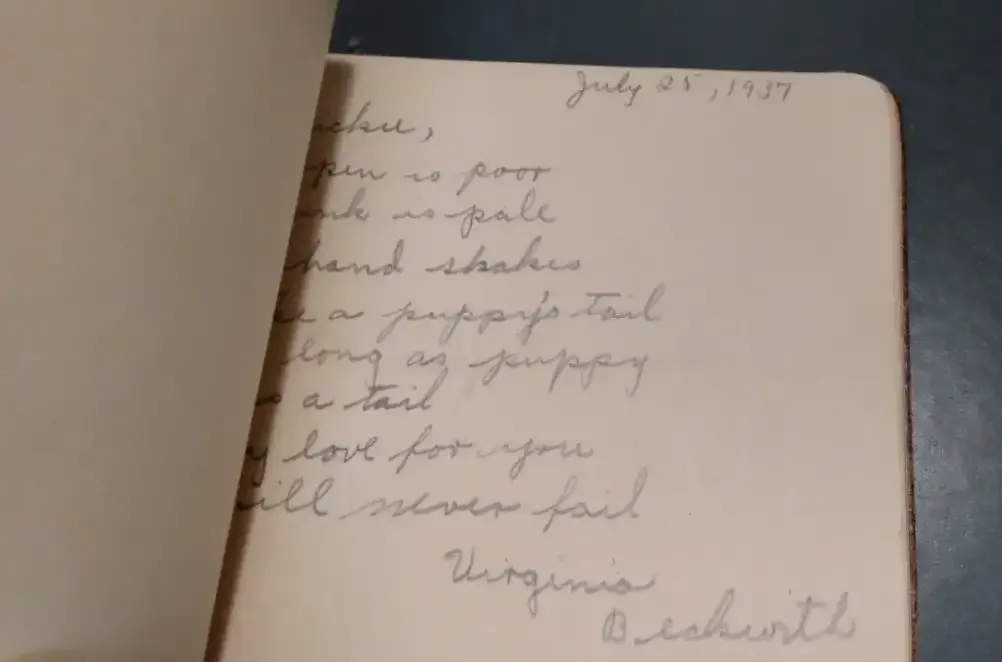 July 25, 1937
ckie,
pen is poor
ink is pale
hand shakes
ke a puppy's tail
long as puppy
s a tail
y love for you
will never fail
Virginia
Beckwith